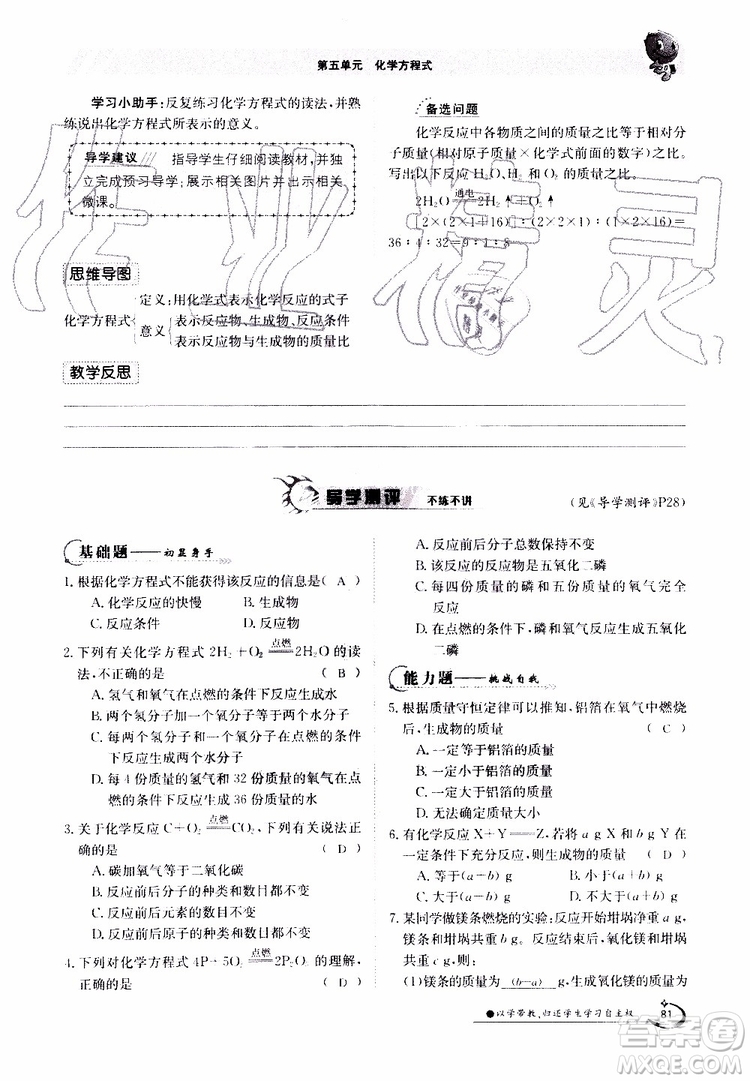 第五单元 化学方程式
学习小助手：反复练习化学方程式的读法，并熟
练说出化学方程式所表示的意义。
导学建议 指导学生仔细阅读教材，并独
立完成预习导学；展示相关图片并出示相关
微课。
思维导图
化学方程式
定义：用化学式表示化学反应的式子
意义
表示反应物、生成物、反应条件
表示反应物与生成物的质量比
教学反思
备选问题
化学反应中各物质之间的质量之比等于相对分
子质量（相对原子质量×化学式前面的数字）之比。
写出以下反应 H₂O、H₂、O₂ 的质量之比。
2H₂O 通电 2H₂↑+O₂↑
[2×(2×1+16)]∶(2×1×2)∶(2×16)=
36∶4∶32=9∶1∶8
导学测评 不练不讲
（见《导学测评》P28）
基础题——初显身手
1. 根据化学方程式不能获得该反应的信息是（ A ）
A. 化学反应的快慢 B. 生成物
C. 反应条件 D. 反应物
2. 下列有关化学方程式 2H₂+O₂ 点燃 2H₂O 的读
法，不正确的是 （ B ）
A. 氢气和氧气在点燃的条件下反应生成水
B. 两个氢分子加一个氧分子等于两个水分子
C. 每两个氢分子和一个氧分子在点燃的条件
下反应，生成两个水分子
D. 每4份质量的氢气和32份质量的氧气在点
燃的条件下生成36份质量的水
3. 关于化学反应 C+O₂ 点燃 CO₂，下列有关说法正
确的是 （ D ）
A. 碳加氧气等于二氧化碳
B. 反应前后分子的种类和数目都不变
C. 反应前后元素的数目不变
D. 反应前后原子的种类和数目都不变
4. 下列对化学方程式 4P+5O₂ 点燃 2P₂O₅ 的理解，
正确的是 （ D ）
A. 反应前后分子总数保持不变
B. 该反应的生成物是五氧化二磷
C. 每四份质量的磷和五份质量的氧气完全
反应
D. 在点燃的条件下，磷和氧气反应生成五氧化
二磷
能力题——挑战自我
5. 根据质量守恒定律可以推知，铝箔在氧气中燃烧
后，生成物的质量 （ C ）
A. 一定等于铝箔的质量
B. 一定小于铝箔的质量
C. 一定大于铝箔的质量
D. 无法确定质量大小
6. 有化学反应 X+Y══Z，若将 a g X 与 b g Y 在一
定条件下充分反应，则生成物的质量 （ D ）
A. 等于(a+b) g B. 大于(a+b) g
C. 等于(a-b) g D. 不大于(a+b) g
7. 某同学做镁条燃烧的实验：反应开始坩埚净重 a g，
镁条和坩埚共重 b g，充分反应后，氧化镁和坩埚
共重 c g。则：
(1)镁条的质量为 (b-a) g，生成氧化镁的质量为
●以学带教，归还学生学习自主权 81
作业精灵
答案圈